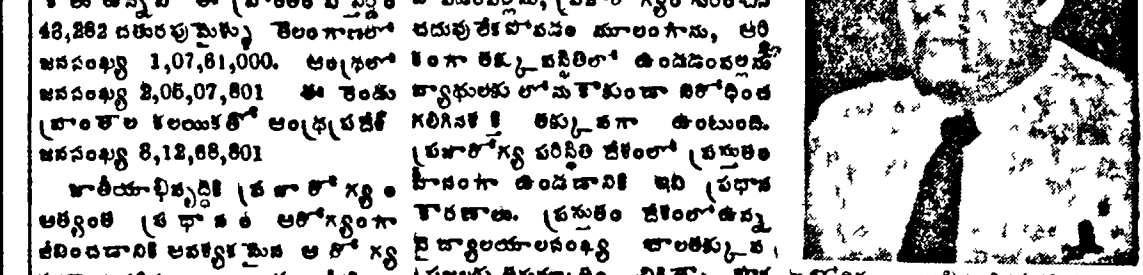 48,282 చతురపుమైళ్ళు తెలంగాణలో
జనసంఖ్య 1,07,61,000. ఆంధ్రలో
జనసంఖ్య 2,05,07,801 ఈ రెండు
ప్రాంతాల కలయికతో ఆంధ్రప్రదేశ్
జనసంఖ్య 3,12,68,801
జాతీయాభివృద్ధికి ప్రజారోగ్యం
అత్యంత ప్రధానం ఆరోగ్యంగా
జీవించడానికి అవశ్యకమైన ఆరోగ్య
చదువు లేకపోవడం మూలంగాను, ఆర్థి
కంగా తక్కువస్థితిలో ఉండడంవల్లను
వ్యాధులకు లోనుకాకుండా నిరోధించ
గలిగినశక్తి తక్కువగా ఉంటుంది.
ప్రజారోగ్య పరిస్థితి దేశంలో ప్రస్తుతం
హీనంగా ఉండడానికి ఇవి ప్రధాన
కారణాలు. ప్రస్తుతం దేశంలోఉన్న
వైద్యాలయాలసంఖ్య చాలతక్కువ.